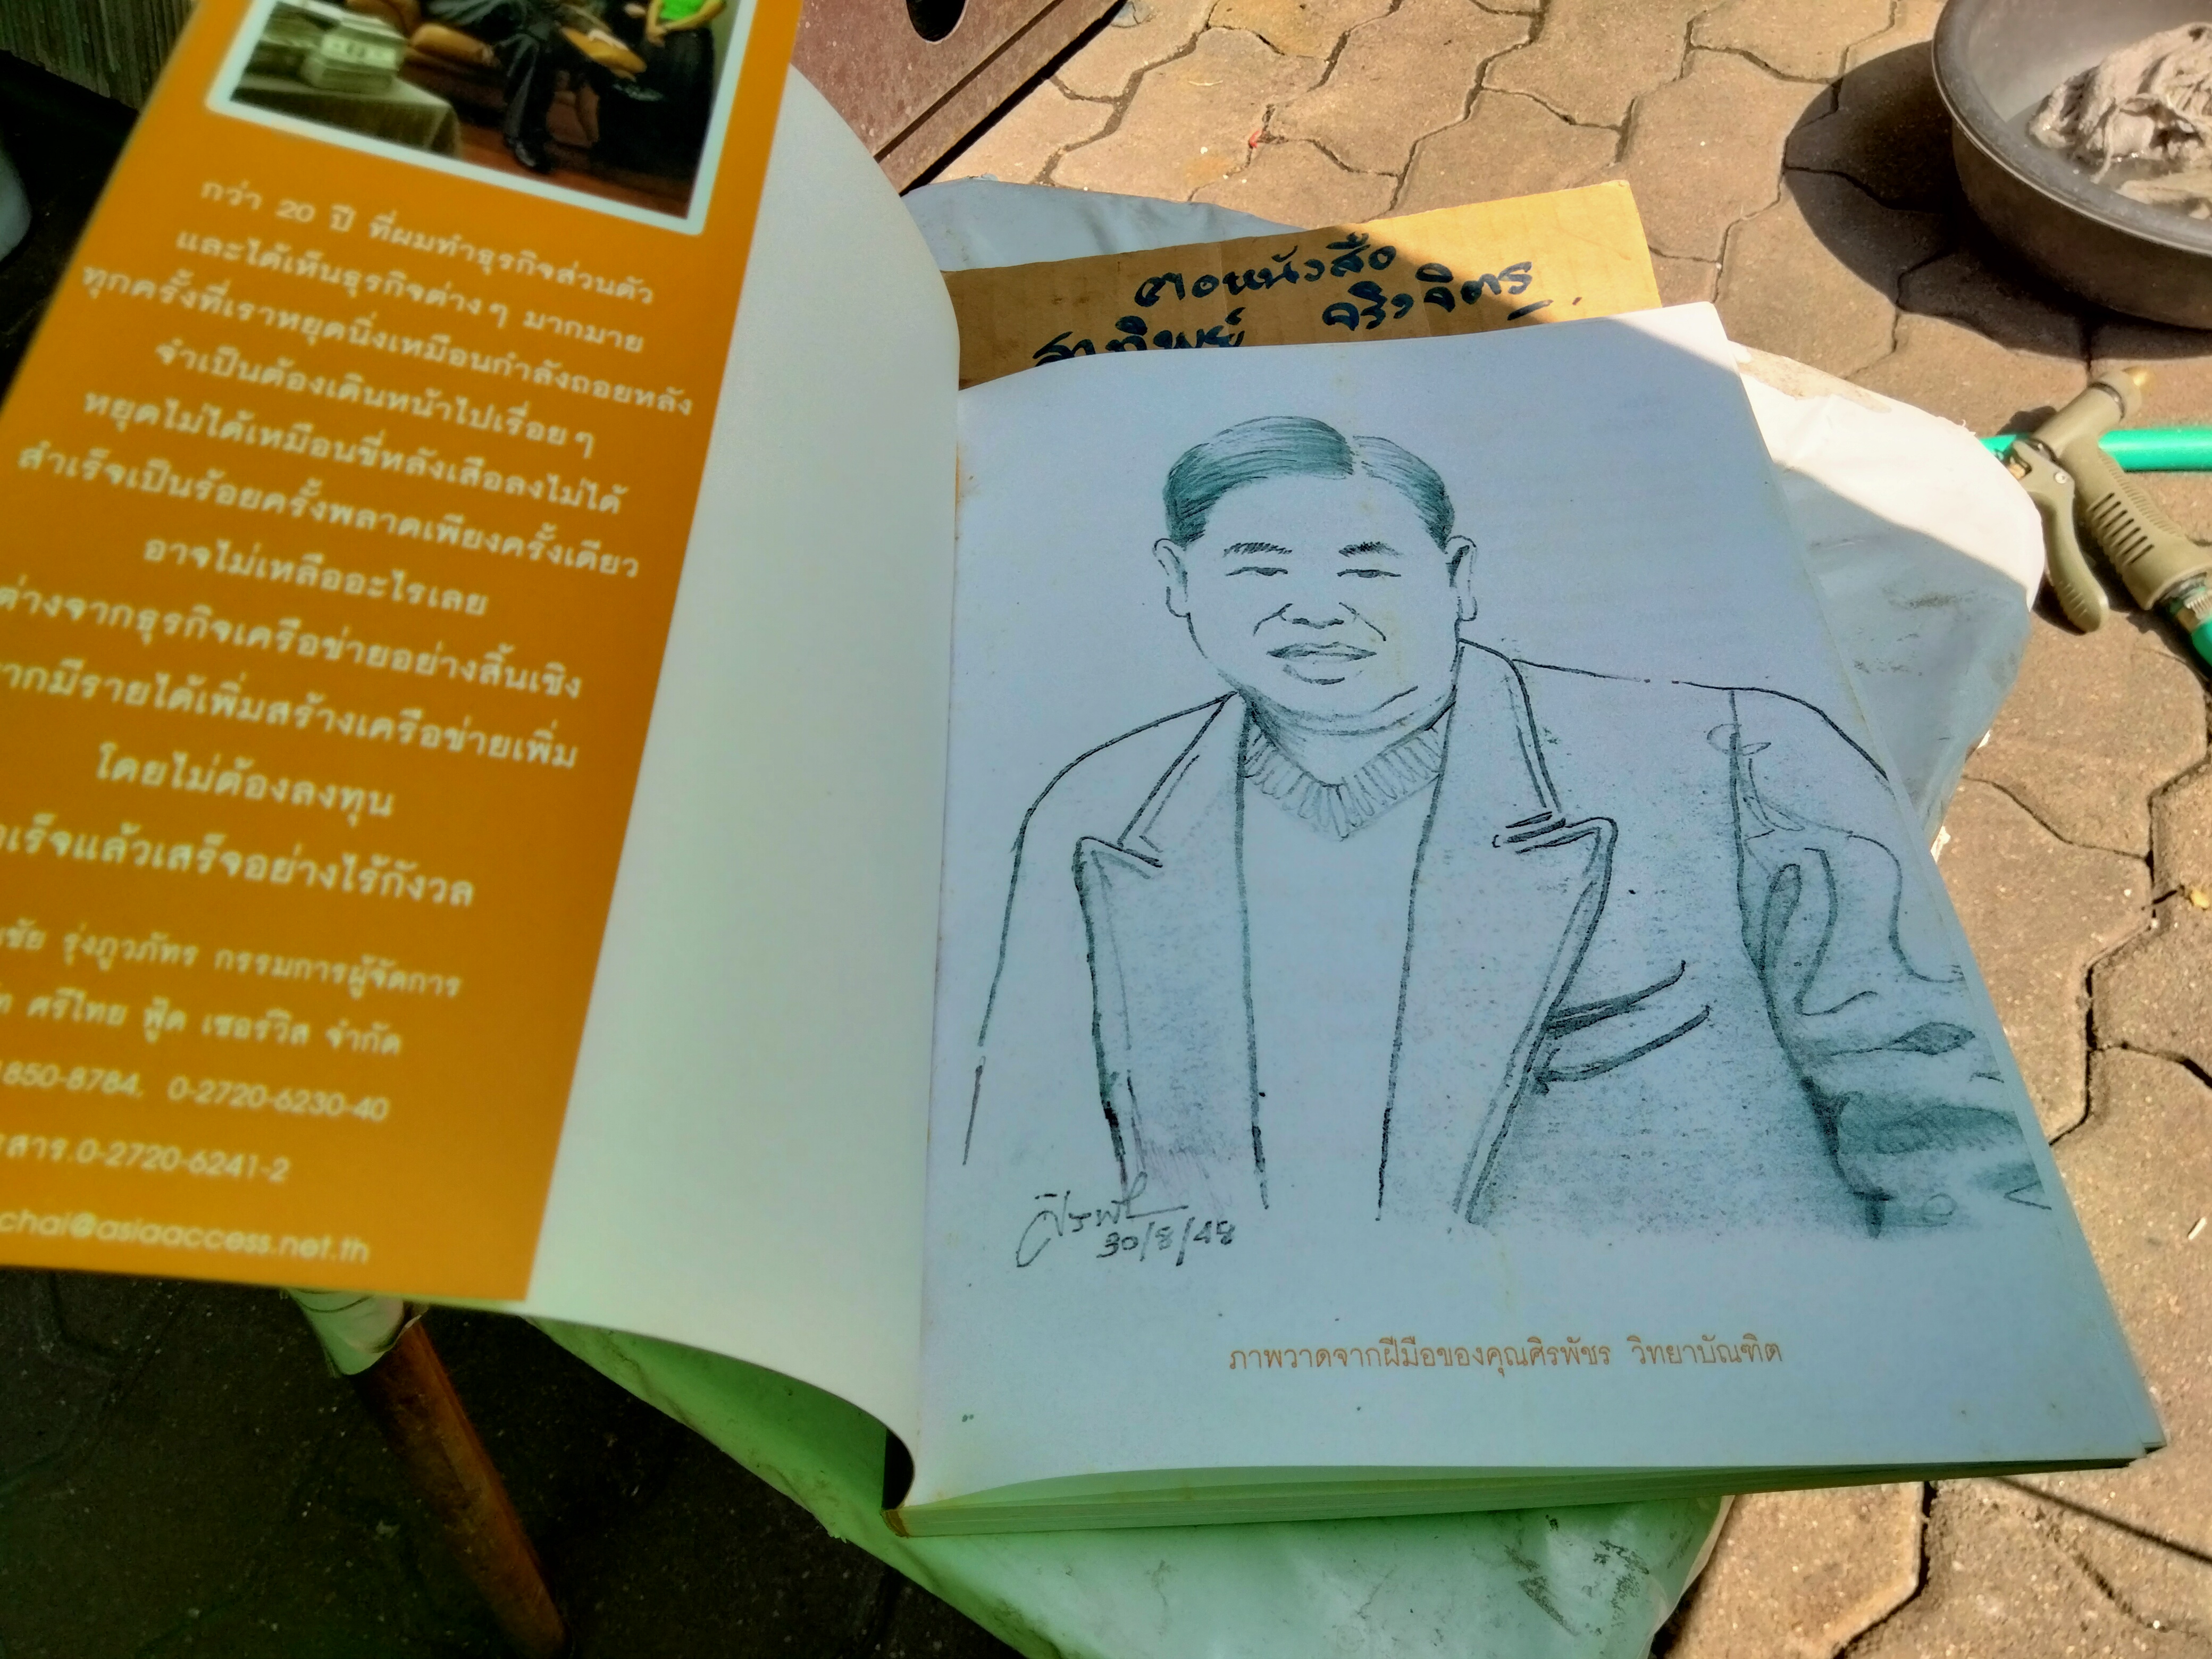 กว่า 20 ปี ที่ผมทำธุรกิจส่วนตัว
และได้เห็นธุรกิจต่างๆ มากมาย
ทุกครั้งที่เราหยุดนิ่งเหมือนกำลังถอยหลัง
จำเป็นต้องเดินหน้าไปเรื่อยๆ
หยุดไม่ได้เหมือนขี่หลังเสือลงไม่ได้
สำเร็จเป็นร้อยครั้งพลาดเพียงครั้งเดียว
อาจไม่เหลืออะไรเลย
ต่างจากธุรกิจเครือข่ายอย่างสิ้นเชิง
มีรายได้เพิ่มสร้างเครือข่ายเพิ่ม
โดยไม่ต้องลงทุน
แล้วเสร็จอย่างไร้กังวล
ชัย รุ่งภูวภัทร กรรมการผู้จัดการ
ศรีไทย ฟู้ด เซอร์วิส จำกัด
850-8784, 0-2720-6230-40
สาร.0-2720-6241-2
chai@asiaaccess.net.th
หนังสือ
ศิรพัชร
30/8/48
ภาพวาดจากฝีมือของคุณศิรพัชร วิทยาบัณฑิต